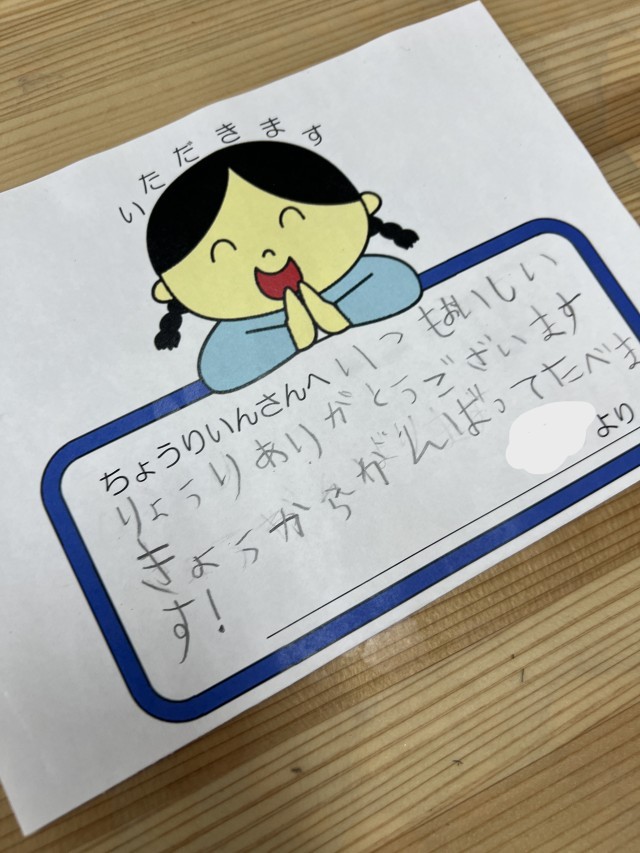 いただきます
ちょうりいんさんへ いつもおいしい
りょうりありがとうございます
きょうからがんばってたべま
す!
より